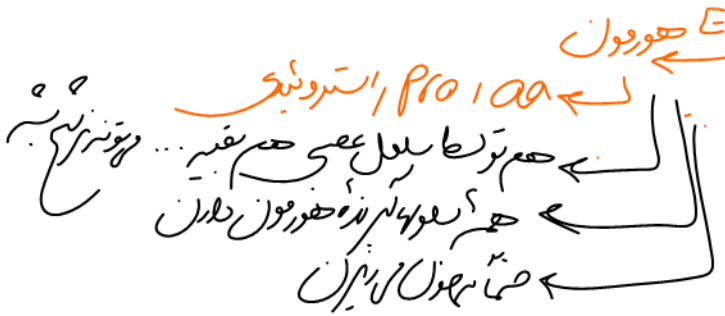 هورمون
aa , pro , استروئیدی
هم توسط سلول عصبی هم بقیه ... می‌تونه ترشح بشه
همهٔ سلولها گیرندهٔ هورمون دارن
حتماً به خون می‌ریزن